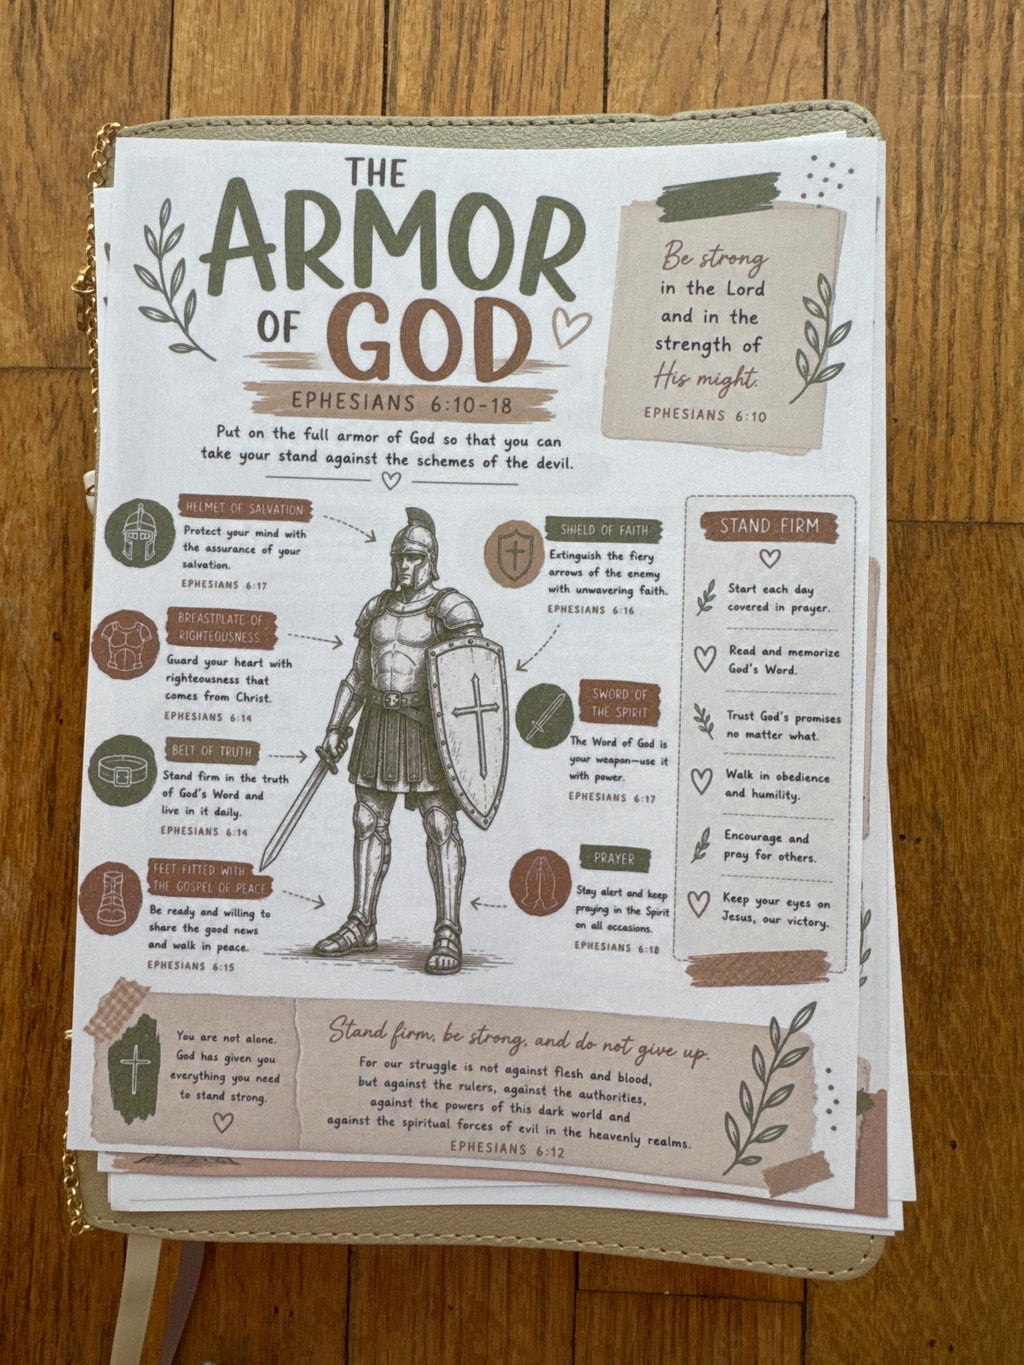 THE
ARMOR
OF GOD
EPHESIANS 6:10-18
Put on the full armor of God so that you can
take your stand against the schemes of the devil.
Be strong
in the Lord
and in the
strength of
His might.
EPHESIANS 6:10
HELMET OF SALVATION
Protect your mind with
the assurance of your
salvation.
EPHESIANS 6:17
BREASTPLATE OF
RIGHTEOUSNESS
Guard your heart with
righteousness that
comes from Christ.
EPHESIANS 6:14
BELT OF TRUTH
Stand firm in the truth
of God's Word and
live in it daily.
EPHESIANS 6:14
FEET FITTED WITH
THE GOSPEL OF PEACE
Be ready and willing to
share the good news
and walk in peace.
EPHESIANS 6:15
SHIELD OF FAITH
Extinguish the fiery
arrows of the enemy
with unwavering faith.
EPHESIANS 6:16
SWORD OF
THE SPIRIT
The Word of God is
your weapon—use it
with power.
EPHESIANS 6:17
PRAYER
Stay alert and keep
praying in the Spirit
on all occasions.
EPHESIANS 6:18
STAND FIRM
Start each day
covered in prayer.
Read and memorize
God's Word.
Trust God's promises
no matter what.
Walk in obedience
and humility.
Encourage and
pray for others.
Keep your eyes on
Jesus, our victory.
You are not alone.
God has given you
everything you need
to stand strong.
Stand firm, be strong, and do not give up.
For our struggle is not against flesh and blood,
but against the rulers, against the authorities,
against the powers of this dark world and
against the spiritual forces of evil in the heavenly realms.
EPHESIANS 6:12